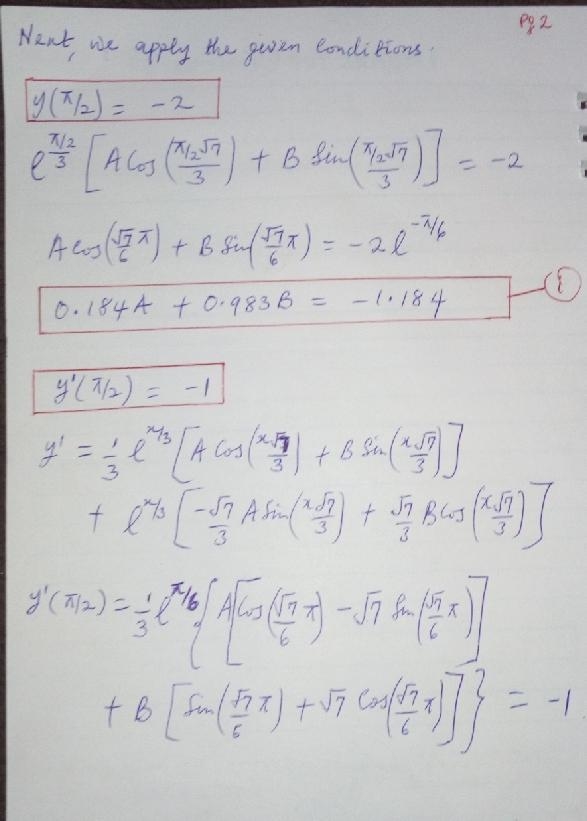 Pg 2
Next, we apply the given conditions.
y(π/2) = -2
e^((π/2)/3) [A Cos((π/2 √7)/3) + B Sin((π/2 √7)/3)] = -2
A cos(√7/6 π) + B Sin(√7/6 π) = -2e^(-π/6)
0.184A + 0.983B = -1.184 (1)
y'(π/2) = -1
y' = 1/3 e^(x/3) [A Cos(x√7/3) + B Sin(x√7/3)]
+ e^(x/3) [-√7/3 A Sin(x√7/3) + √7/3 B Cos(x√7/3)]
y'(π/2) = 1/3 e^(π/6) {A[Cos(√7/6 π) - √7 Sin(√7/6 π)]
+ B [Sin(√7/6 π) + √7 Cos(√7/6 π)]} = -1